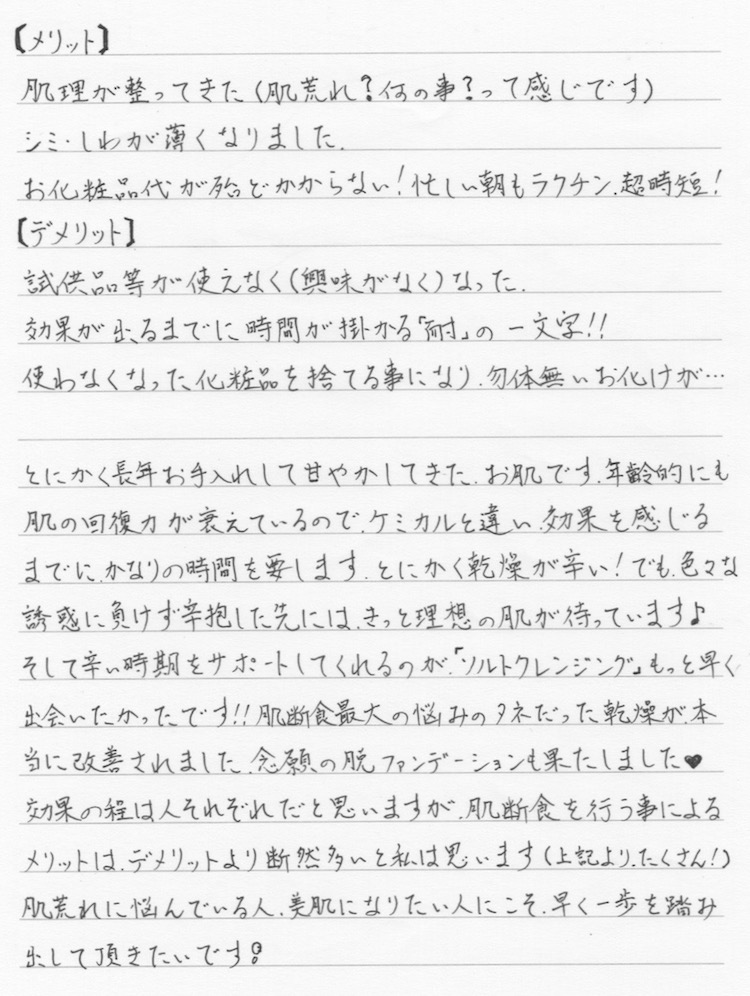 【メリット】
肌理が整ってきた(肌荒れ?何の事?って感じです)
シミ・しわが薄くなりました.
お化粧品代が殆どかからない!忙しい朝もラクチン、超時短!
【デメリット】
試供品等が使えなく(興味がなく)なった.
効果が出るまでに時間が掛かる「耐」の一文字!!
使わなくなった化粧品を捨てる事になり、勿体無いお化けが…
とにかく長年お手入れして甘やかしてきた、お肌です、年齢的にも
肌の回復力が衰えているので、ケミカルと違い、効果を感じる
までに、かなりの時間を要します、とにかく乾燥が辛い!でも、色々な
誘惑に負けず辛抱した先には、きっと理想の肌が待っています♪
そして辛い時期をサポートしてくれるのが、「ソルトクレンジング」もっと早く
出会いたかったです!!肌断食最大の悩みのタネだった乾燥が、本
当に改善されました、念願の脱ファンデーションも果たしました♥
効果の程は人それぞれだと思いますが、肌断食を行う事による
メリットは、デメリットより断然多いと私は思います(上記より、たくさん!)
肌荒れに悩んでいる人、美肌になりたい人にこそ、早く一歩を踏み
出して頂きたいです!